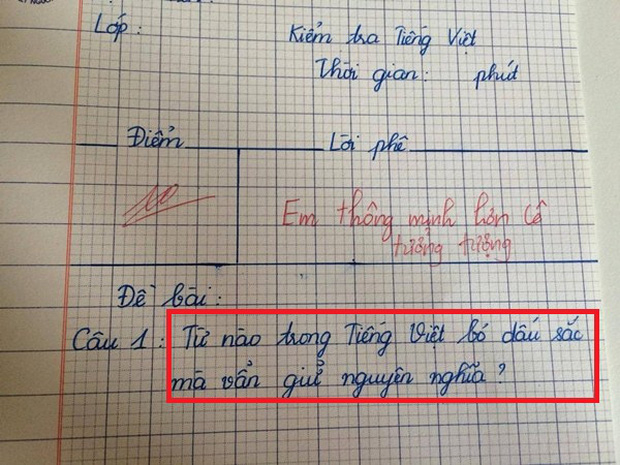 Lớp:
Kiểm tra Tiếng Việt
Thời gian: phút
Điểm
Lời phê
10
Em thông minh hơn Cô
tưởng tượng
Đề bài:
Câu 1: Từ nào trong Tiếng Việt bỏ dấu sắc
mà vẩn giử nguyên nghĩa?